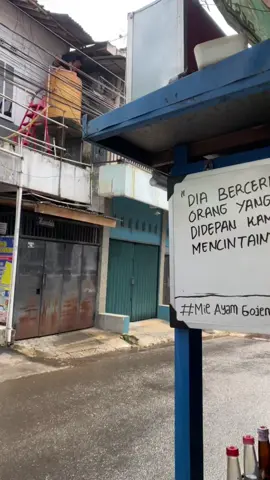 "DIA BERCERI
ORANG YANG
DIDEPAN KAM
MENCINTAIN
#Mie Ayam Gojen